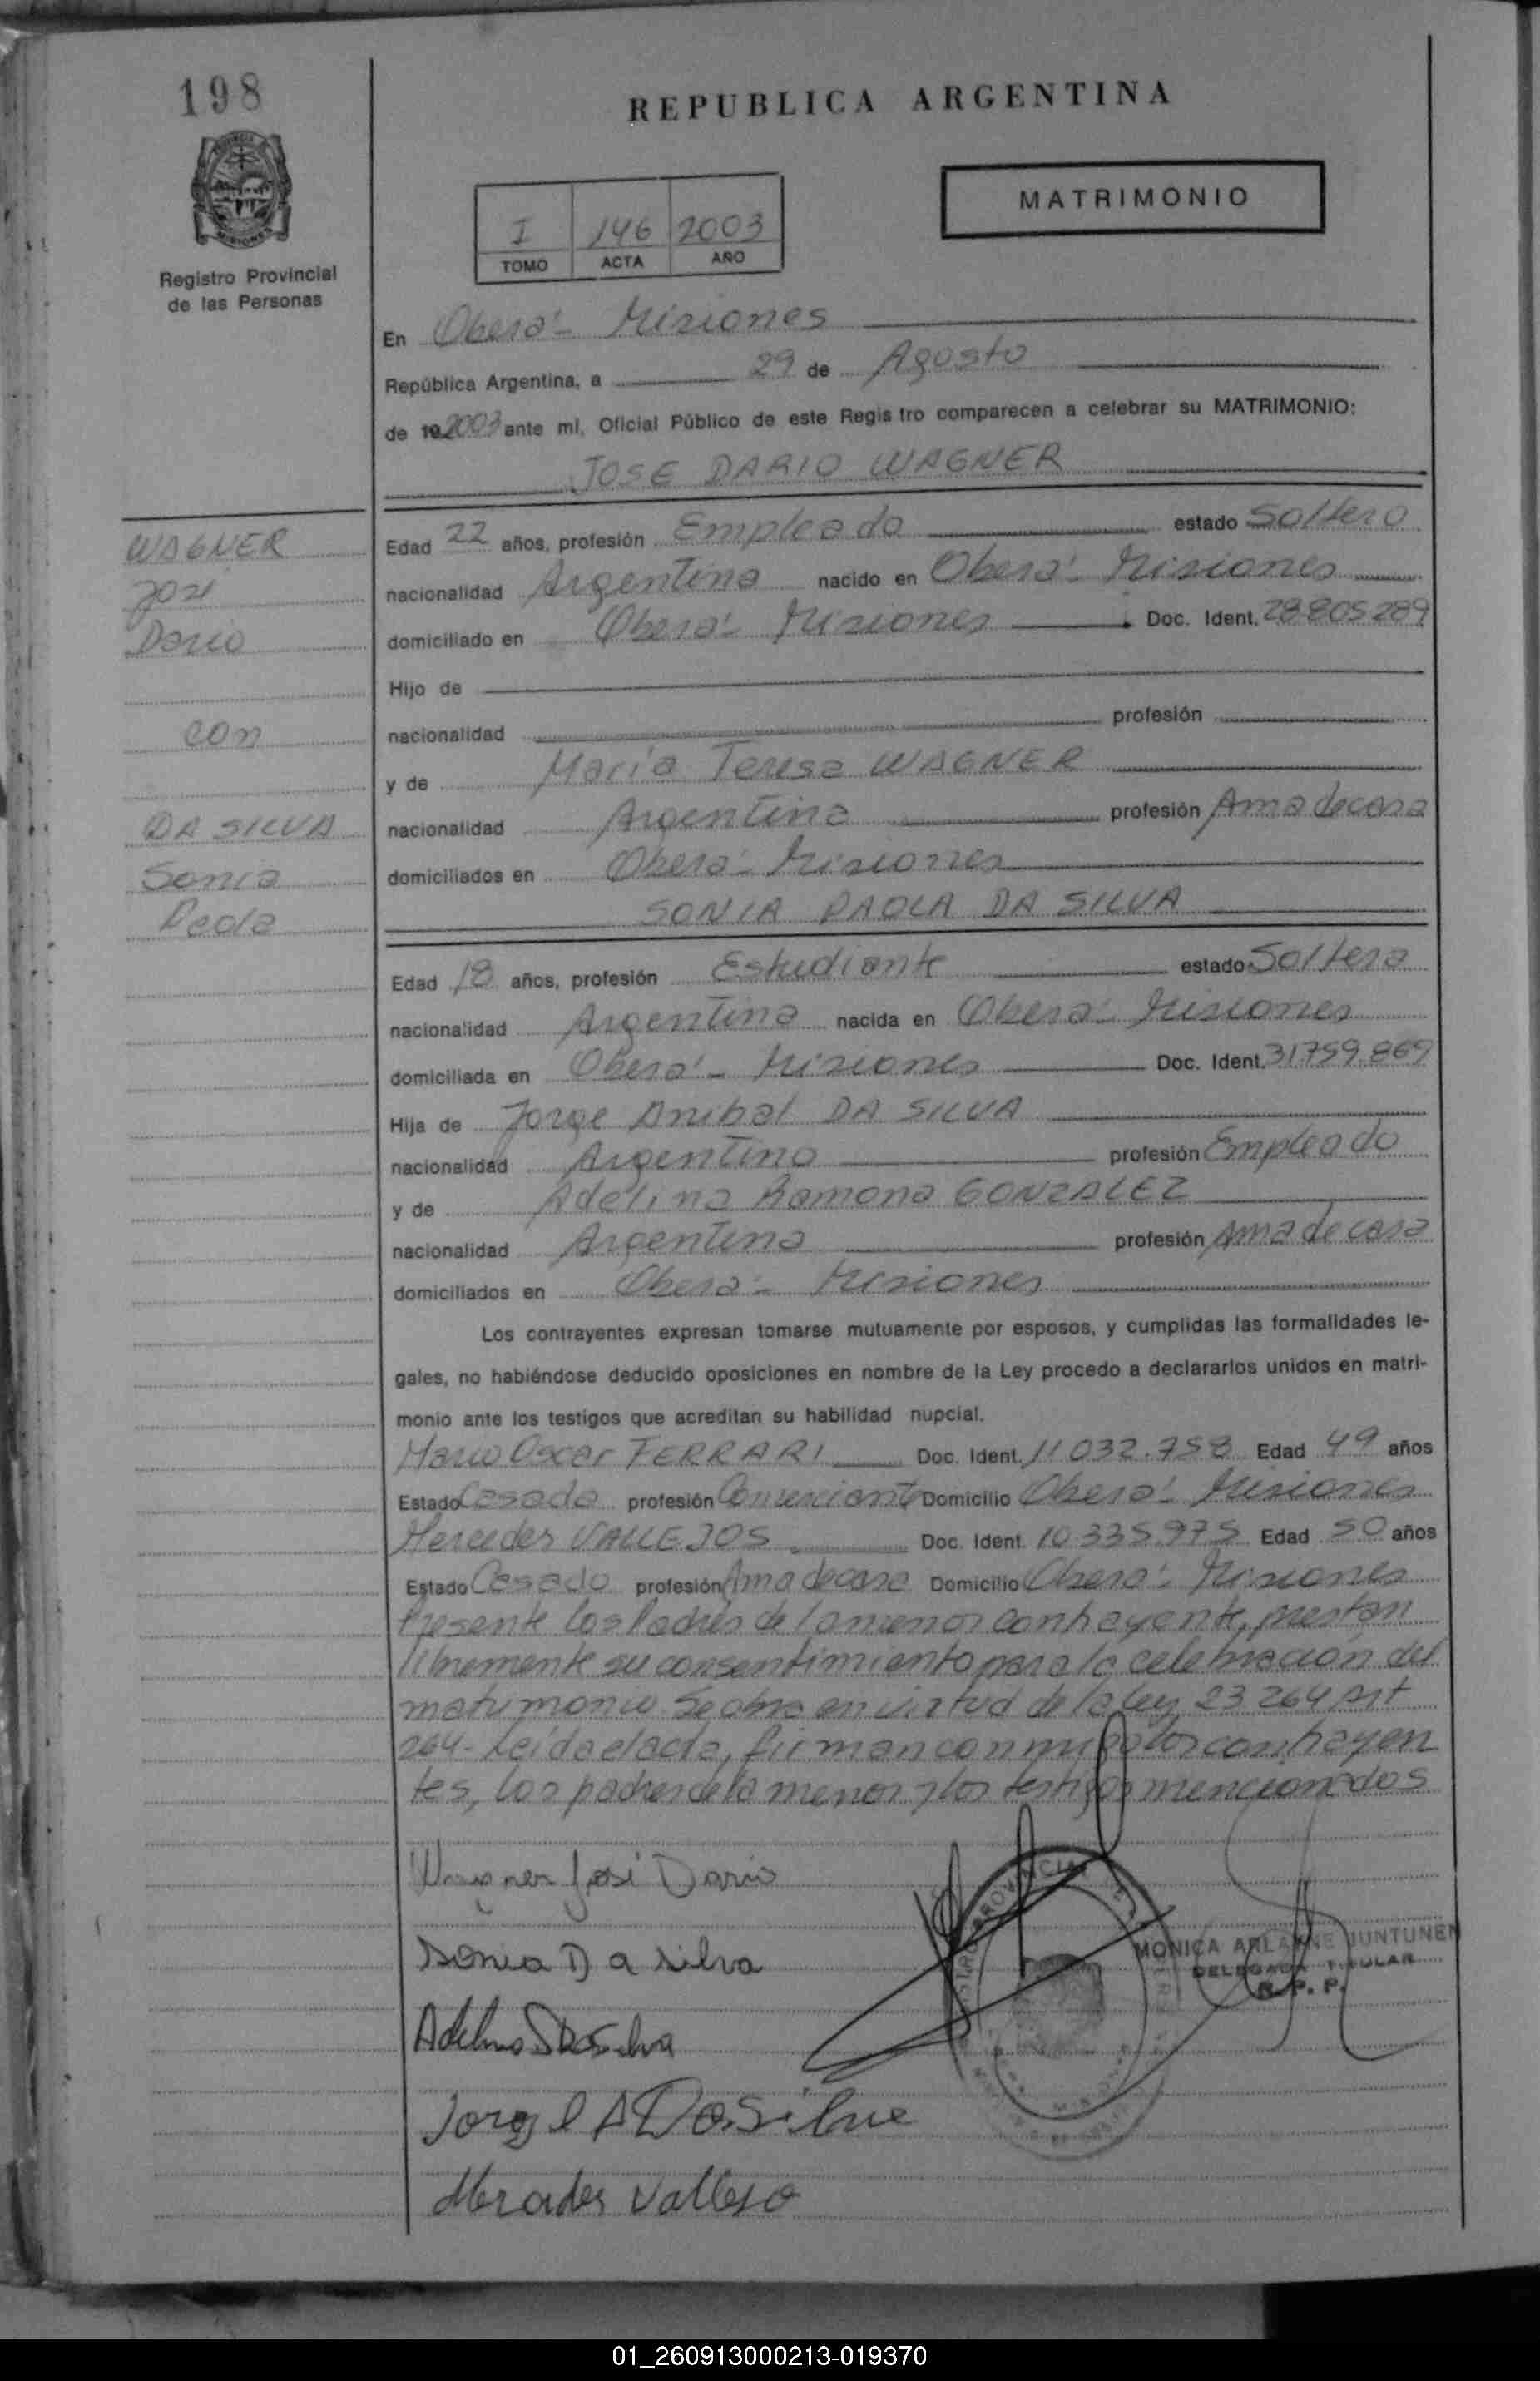 198
REPUBLICA ARGENTINA
MATRIMONIO
I 146 2003
TOMO ACTA AÑO
Registro Provincial
de las Personas
En Oberá - Misiones
República Argentina, a 29 de Agosto
de 19 2003 ante mí, Oficial Público de este Regis tro comparecen a celebrar su MATRIMONIO:
JOSE DARIO WAGNER
WAGNER
José
Dario
con
DA SILVA
Sonia
Paola
Edad 22 años, profesión Empleado estado Soltero
nacionalidad Argentina nacido en Oberá - Misiones
domiciliado en Oberá - Misiones Doc. Ident. 28.805.289
Hijo de
nacionalidad profesión
y de María Teresa WAGNER
nacionalidad Argentina profesión Ama de casa
domiciliados en Oberá - Misiones
SONIA PAOLA DA SILVA
Edad 18 años, profesión Estudiante estado Soltera
nacionalidad Argentina nacida en Oberá - Misiones
domiciliada en Oberá - Misiones Doc. Ident. 31.759.869
Hija de Jorge Anibal DA SILVA
nacionalidad Argentino profesión Empleado
y de Adelina Ramona GONZALEZ
nacionalidad Argentina profesión Ama de casa
domiciliados en Oberá - Misiones
Los contrayentes expresan tomarse mutuamente por esposos, y cumplidas las formalidades le-
gales, no habiéndose deducido oposiciones en nombre de la Ley procedo a declararlos unidos en matri-
monio ante los testigos que acreditan su habilidad nupcial.
Mario Oscar FERRARI Doc. Ident. 11.032.758 Edad 49 años
Estado Casado profesión Comerciante Domicilio Oberá - Misiones
Mercedes VALLEJOS Doc. Ident. 10.335.975 Edad 50 años
Estado Casado profesión Ama de casa Domicilio Oberá - Misiones
Presente los Padres de la menor contrayente, prestan
libremente su consentimiento para la celebración del
matrimonio. Se obra en virtud de la ley 23.264 Art
264.- Leída el acta, firman conmigo los contrayen
tes, los padres de la menor y los testigos mencionados
Wagner José Dario
Sonia Da silva
MONICA ARLANNE JUNTUNEN
DELEGADA TITULAR
R. P. P.
Adelina Da Silva
Jorge A Da Silva
Mercedes Vallejo
01_260913000213-019370